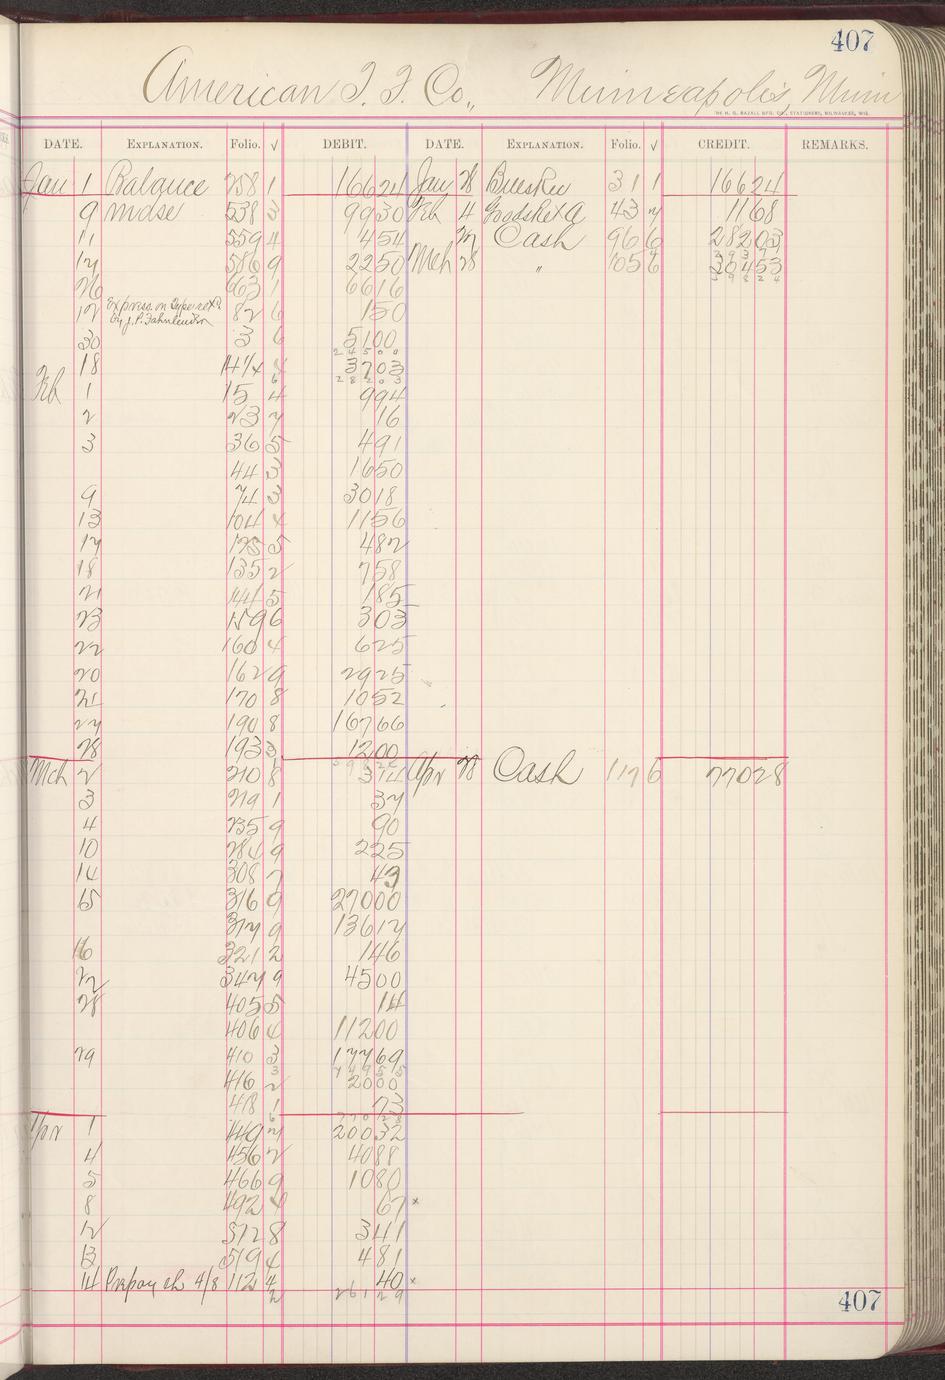 407
American T. F. Co., Minneapolis, Minn
THE H. G. RAZALL MFG. CO., STATIONERS, MILWAUKEE, WIS.
DATE. EXPLANATION. Folio. √ DEBIT. DATE. EXPLANATION. Folio. √ CREDIT. REMARKS.
Jan 1 Balance 758 1 16624 Jan 28 311 16624
9 mdse 538 3 9930 Feb 4 43 7 1168
11 559 4 454 27 Cash 96 6 28203
17 586 9 2250 Mch 28 " 105 6 30453
26 963 1 6616
12 Express on 82 6 150
by J. P.
30 3 6 5100
24500
18 3703
28203
Feb 1 15 4 994
2 23 7 16
3 36 5 491
44 3 1650
9 74 3 3018
13 104 4 1156
17 125 5 482
18 135 2 758
21 144 5 185
23 159 6 303
22 160 4 625
20 162 9 2925
21 170 8 1052
27 190 8 16766
28 193 3 1200
Mch 2 210 8 314 Apr 28 Cash 117 6 77028
3 219 1 37
4 235 9 90
10 284 9 225
14 308 7 43
15 316 9 27000
317 9 13617
16 321 2 146
22 347 9 4500
28 405 5 14
406 4 11200
29 410 3 17769
416 2 2000
418 1 73
Apr 1 449 7 20032
4 456 2 4088
5 466 9 1080
8 492 4 67 x
12 512 8 341
13 519 4 481
14 Prepay ch 4/8 112 4 40 x
2 26129
407